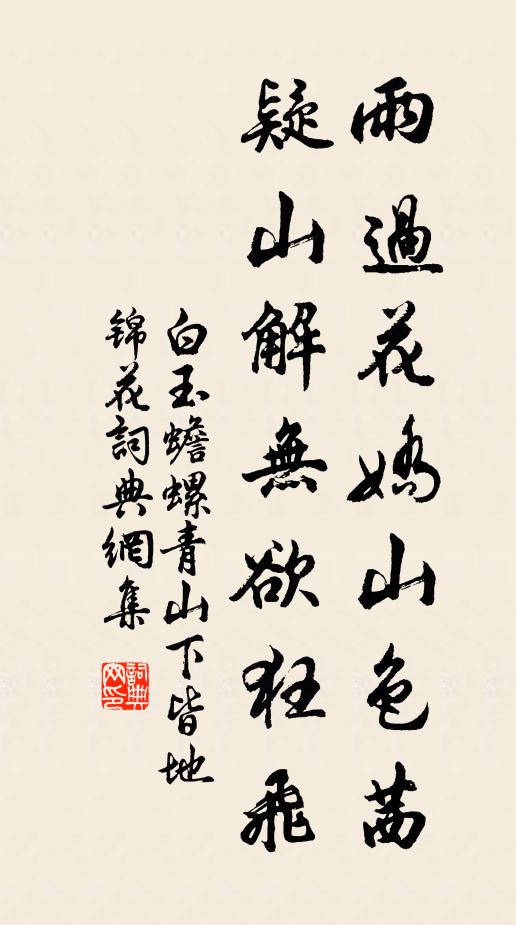 雨過花嬌山色茜
疑山解無欲狂飛
白玉蟾螺青山下皆地
锦花詞典網集
詞典網印